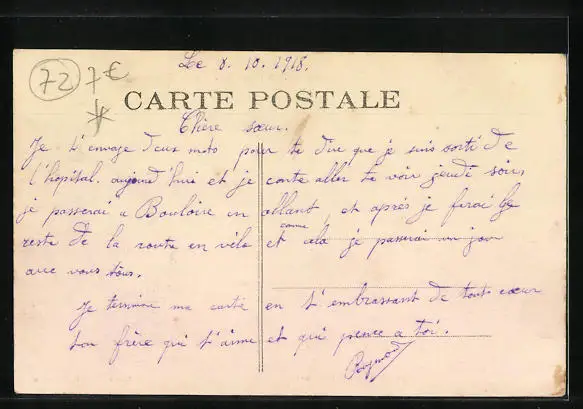 72 7€
Le 8. 10. 1918.
CARTE POSTALE
Chère sœur.
Je t'envoye deux mots pour te dire que je suis sorti de
l'hopital. aujourd'hui et je conte aller te voir jeudi soir,
je passerai a Bouloire en allant, et après je ferai le
reste de la route en vélo et comme cela je passerai un jour
avec vous tous.
Je termine ma carte en t'embrassant de tout cœur
ton frère qui t'aime et qui pence a toi.
Raymond